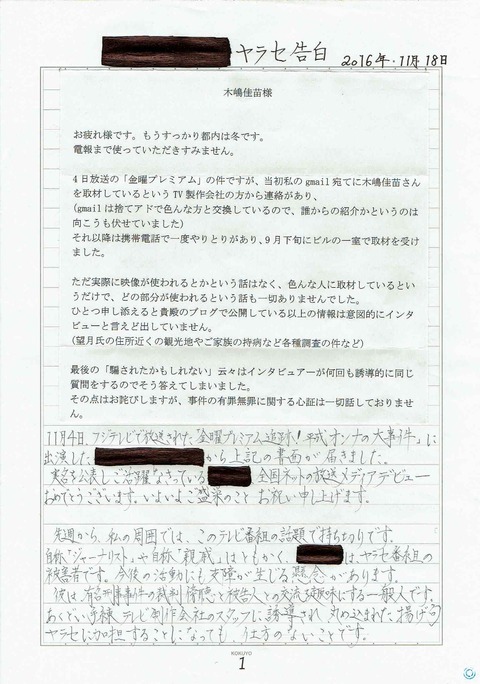 ヤラセ告白 2016年.11月18日
木嶋佳苗様
お疲れ様です。もうすっかり都内は冬です。
電報まで使っていただきすみません。
4日放送の「金曜プレミアム」の件ですが、当初私のgmail宛てに木嶋佳苗さん
を取材しているというTV製作会社の方から連絡があり、
(gmailは捨てアドで色んな方と交換しているので、誰からの紹介かというのは
向こうも伏せていました)
それ以降は携帯電話で一度やりとりがあり、9月下旬にビルの一室で取材を受け
ました。
ただ実際に映像が使われるとかという話はなく、色んな人に取材しているとい
うだけで、どの部分が使われるという話も一切ありませんでした。
ひとつ申し添えると貴殿のブログで公開している以上の情報は意図的にインタ
ビューと言えど出していません。
(望月氏の住所近くの観光地やご家族の持病など各種調査の件など)
最後の「騙されたかもしれない」云々はインタビュアーが何回も誘導的に同じ
質問をするのでそう答えてしまいました。
その点はお詫びしますが、事件の有罪無罪に関する心証は一切話しておりませ
ん。
11月4日、フジテレビで放送された「金曜プレミアム追跡!平成オンナの大事件」に
出演した から上記の書面が届きました。
実名を公表しご活躍なさっている 全国ネットの放送メディアデビュー
おめでとうございます。いよいよご盛栄のこと お祝い申し上げます。
先週から、私の周囲では、このテレビ番組の話題で持ち切りです。
自称「ジャーナリスト」や自称「親戚」はともかく、 は、ヤラセ番組の
被害者です。今後の活動にも支障が生じる懸念があります。
彼は、有名刑事事件の裁判傍聴と被告人との交流を趣味にする一般人です。
あくどい手練テレビ制作会社のスタッフに誘導され、丸め込まれた揚げ句
ヤラセに加担することになっても、仕方のないことです。
KOKUYO
1